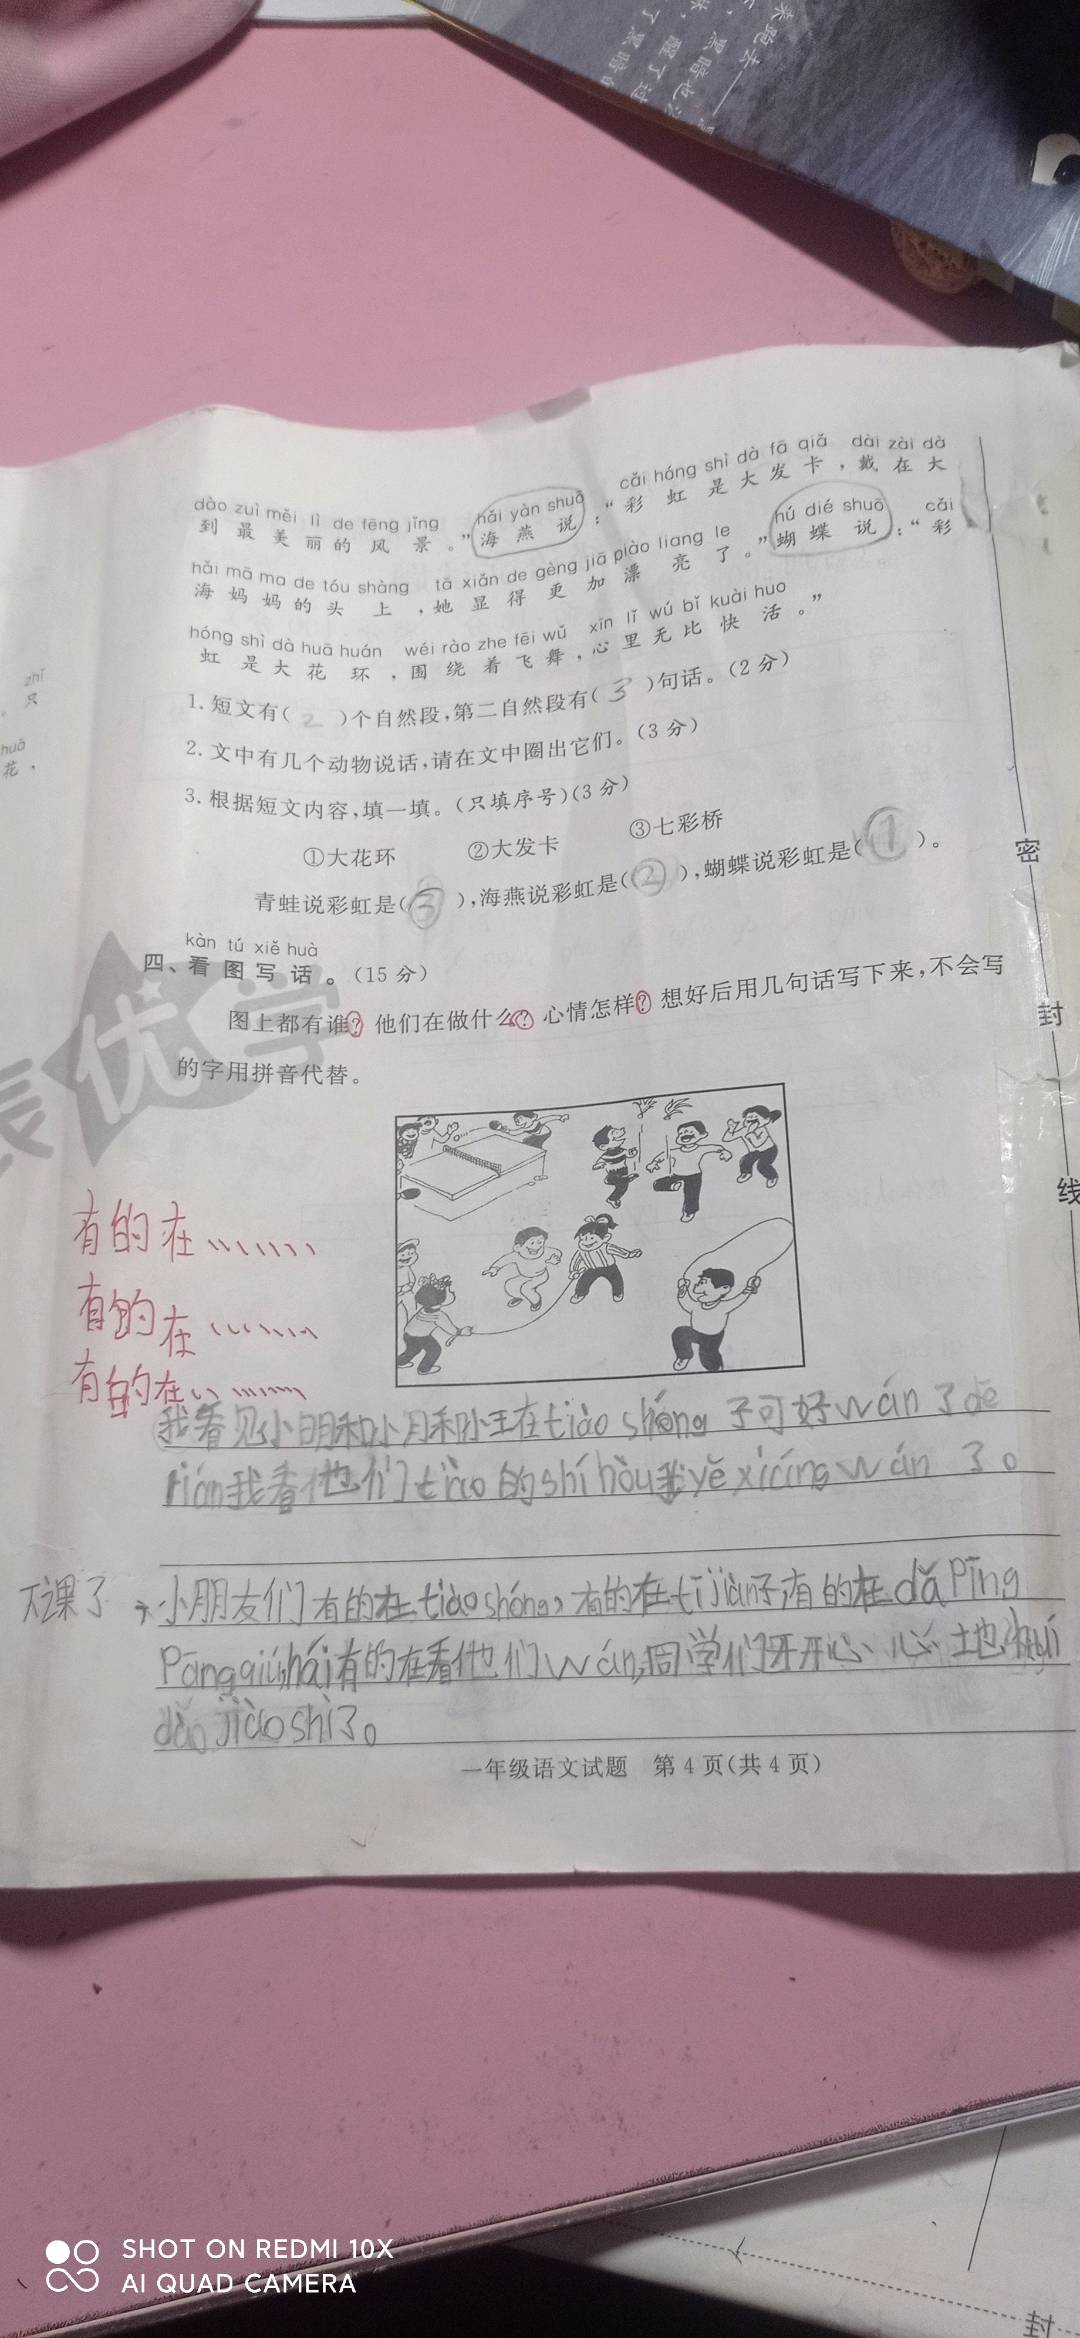 cǎi hóng shì dà fā qiǎ dài zài dà
dào zuì měi lì de fēng jǐng hǎi yàn shuō
到最美丽的风景。”海燕说:“彩虹是大发卡,戴在大
hǎi mā ma de tóu shàng tā xiǎn de gèng jiā piào liang le hú dié shuō cǎi
海妈妈的头上,她显得更加漂亮了。”蝴蝶说:“彩
hóng shì dà huā huán wéi rào zhe fēi wǔ xīn lǐ wú bǐ kuài huo
虹是大花环,围绕着飞舞,心里无比快活。”
zhī
。只
huā
花,
1.短文有(2)个自然段,第二自然段有(3)句话。(2分)
2.文中有几个动物说话,请在文中圈出它们。(3分)
3.根据短文内容,填一填。(只填序号)(3分)
①大花环 ②大发卡 ③七彩桥
青蛙说彩虹是(③),海燕说彩虹是(②),蝴蝶说彩虹是(①)。
kàn tú xiě huà
四、看图写话。(15分)
图上都有谁?他们在做什么?心情怎样?想好后用几句话写下来,不会写
的字用拼音代替。
优学
有的在……
有的在……
有的在……
我看见小明和小月和小王在tiào shéng子可好wán了
我看他们tiào的shí hòu我yě xiǎng wán了。
下课了,小朋友们有的在tiào shéng,有的在tī jiàn子,有的在dǎ Pīng
Pāng qiú,hái有的在看他们wán,同学们开开心心地
dào jiào shì了。
一年级语文试题 第4页(共4页)
密
封
线
SHOT ON REDMI 10X
AI QUAD CAMERA
封